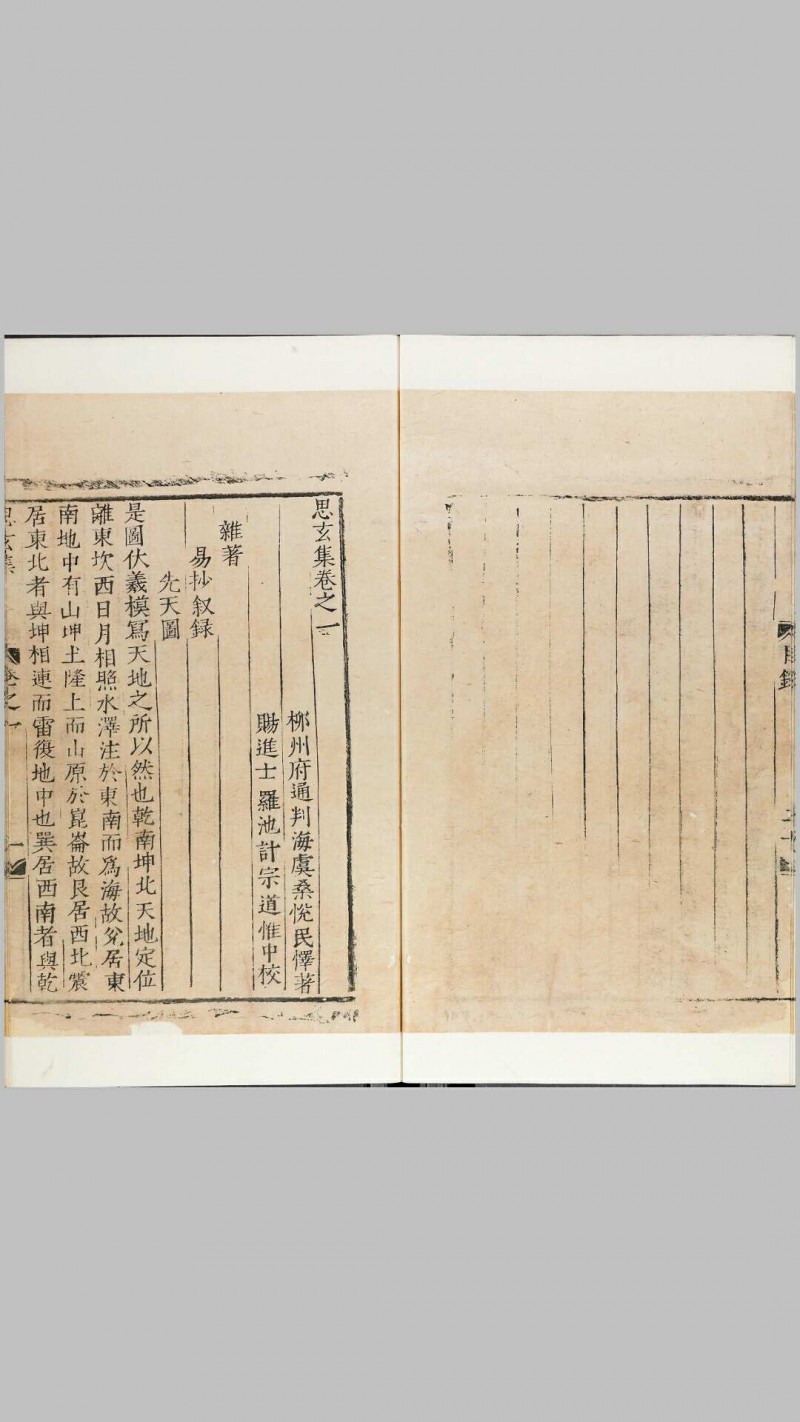 目錄
思玄集卷之一
柳州府通判海虞桑悅民懌著
賜進士羅池計宗道惟中校
雜著
易抄叙録
先天圖
是圖伏羲模寫天地之所以然也乾南坤北天地定位
離東坎西日月相照水澤注於東南而爲海故兊居東
南地中有山坤土隆上而山原於崑崙故艮居西北震
居東北者與坤相連而雷復地中也巽居西南者與乾
思玄集
卷之一
一